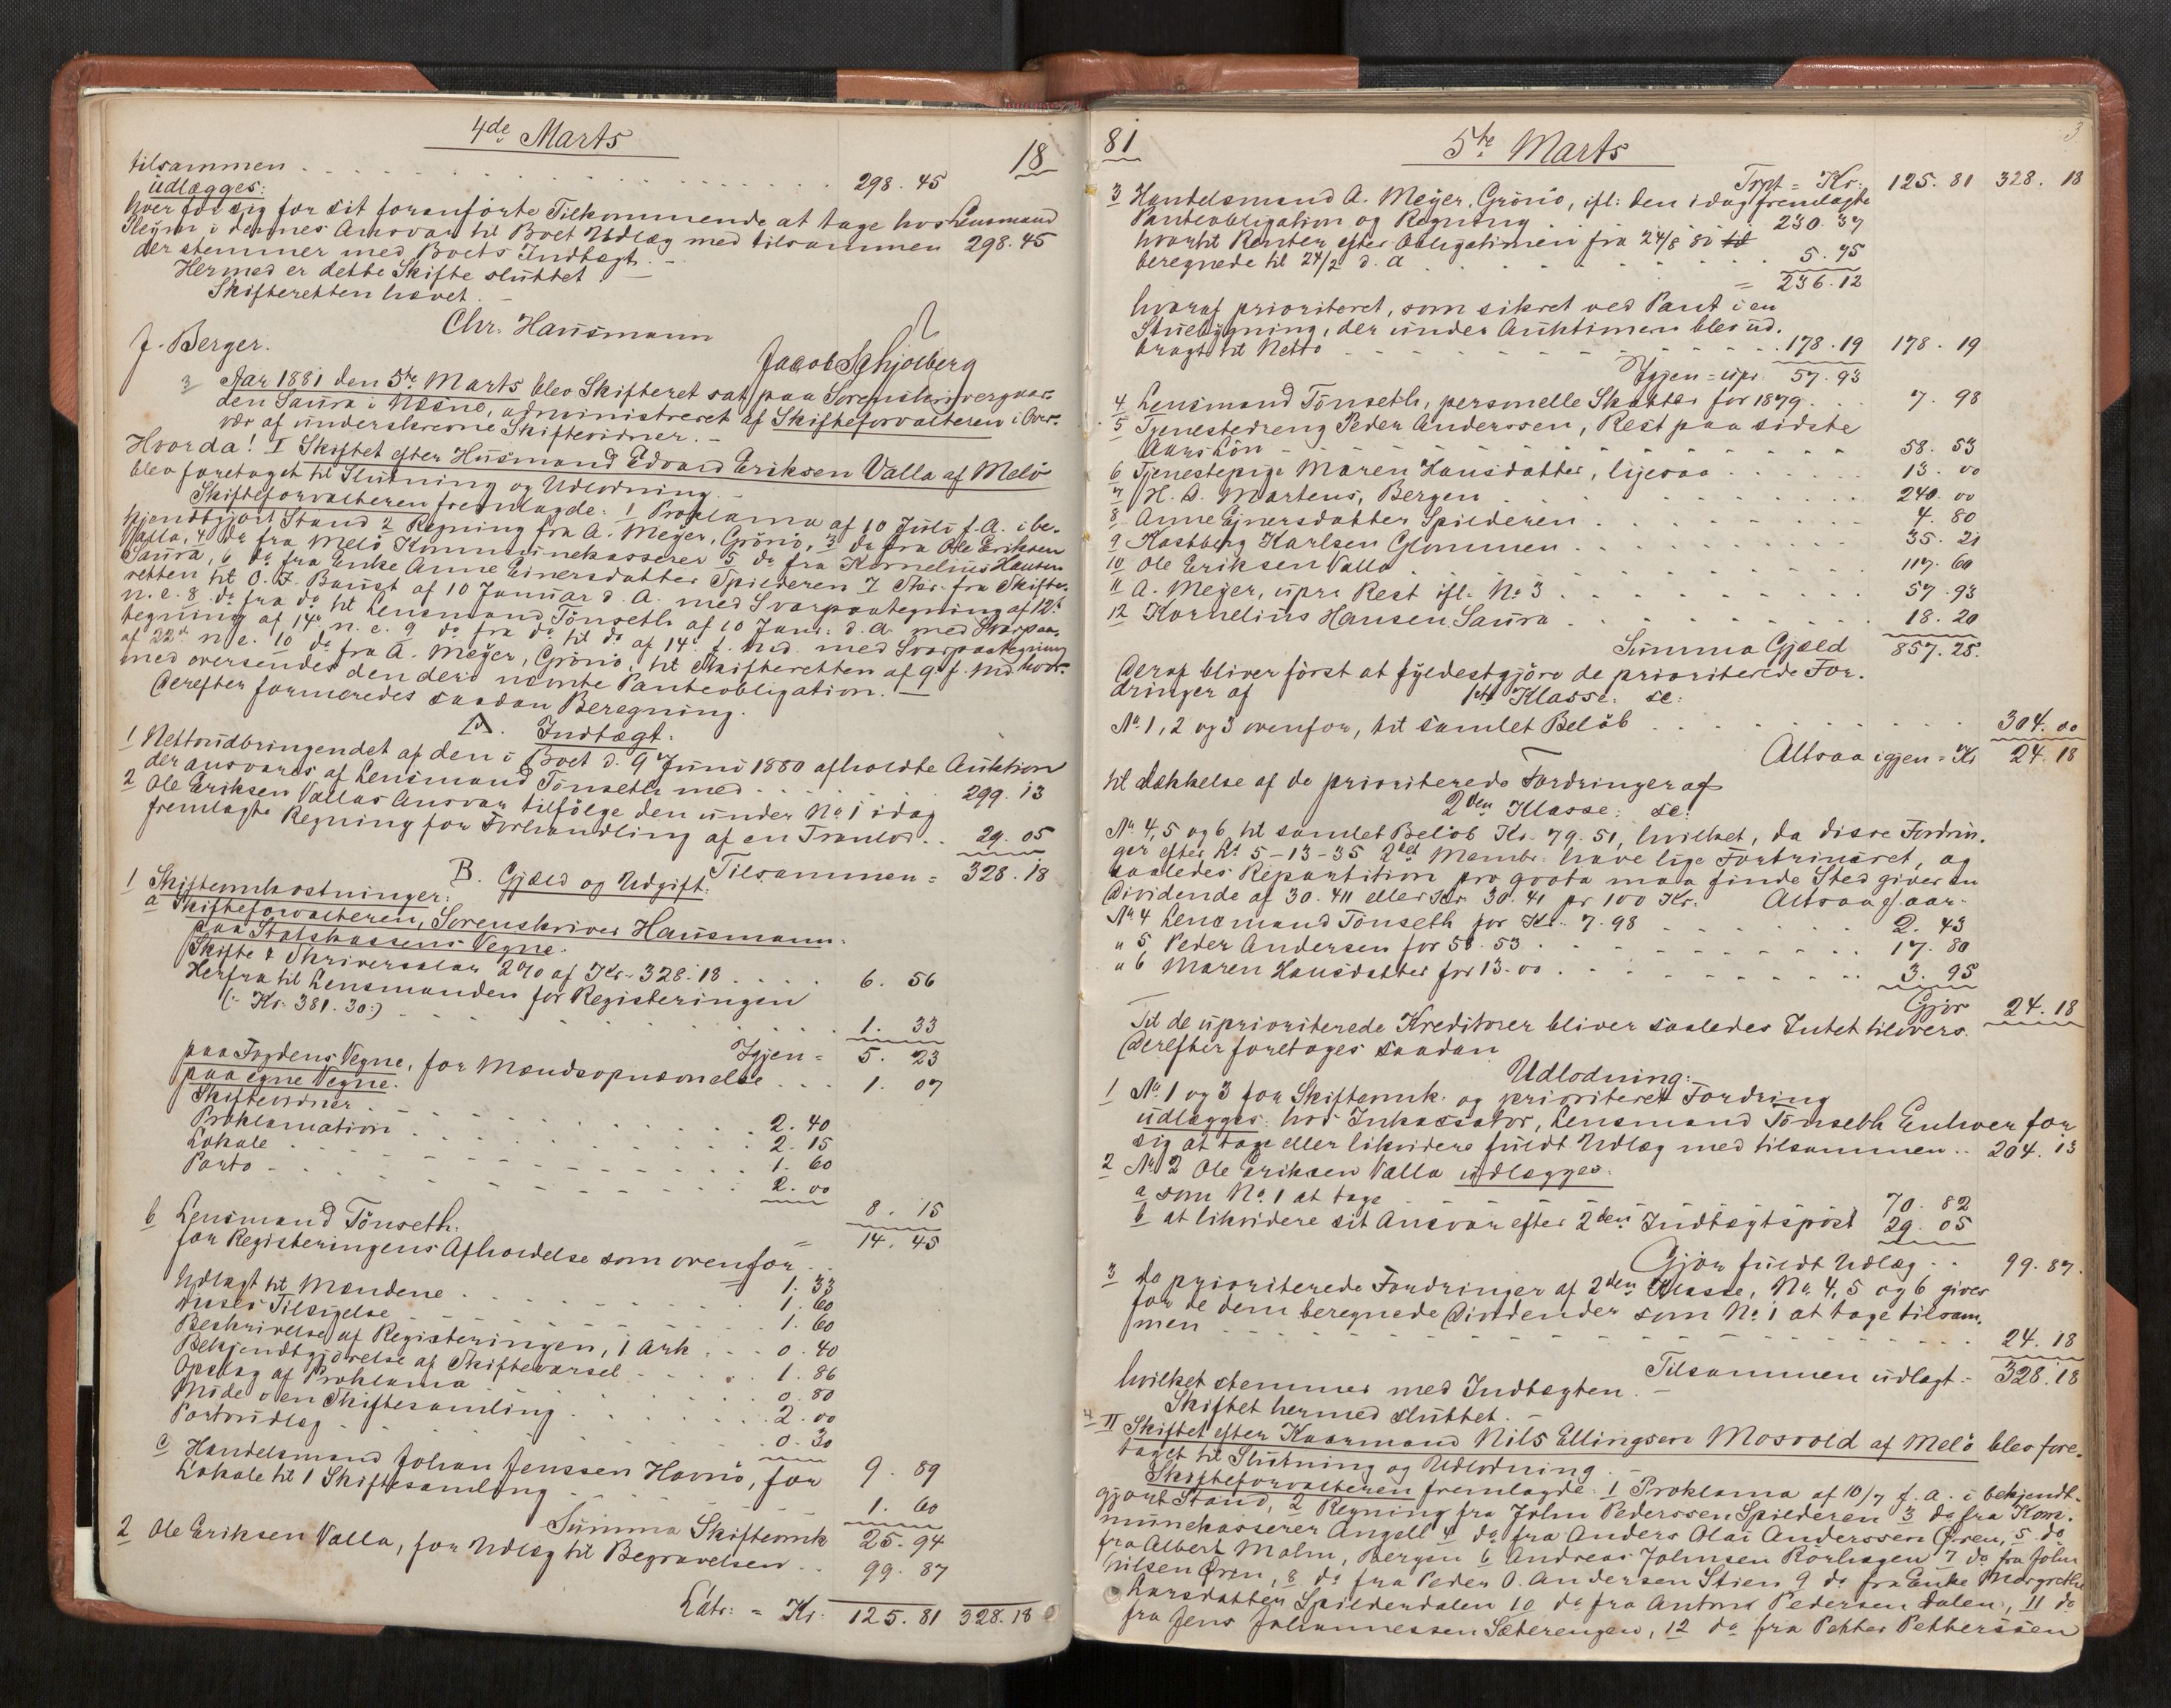 4de Marts
18
tilsammen . . . . . . . . 298. 45
udlægges:
hver for sig for sit foranførte Tilkommende at tage hos Lensmand
i dennes Ansvar til Boet Udlæg med tilsammen 298. 45
der stemmer med Boets Indtægt. —
Hermed er dette Skifte sluttet.
Skifteretten hævet. —
Chr. Hausmann
J. Berger.
Jacob Schjelberg
3 Aar 1881 den 5te Marts blev Skifteret sat paa Sorenskrivergaar-
den Saura i Næsne, administreret af Skifteforvalteren i Over-
vær af underskrevne Skiftevidner. —
Hvorda! I Skiftet efter Husmand Edvard Eriksen Valla af Melø
blev foretaget til Slutning og Udlodning. —
Skifteforvalteren fremlagde: 1 Proklama af 10 Juli f. A. i be-
kjendtgjort Stand 2 Regning fra A. Meyer, Grönö, 3 do fra Ole Eriksen
Valla, 4 do fra Melö Kommunekasserer 5 do fra Kornelius Hansen
Saura, 6 do fra Enke Anne Einersdatter Spilderen 7 Skr. fra Skifte-
retten til O. F. Baust af 10 Januar d. A. med Svarpaategning af 12t
n. e. 8 do fra do til Lensmand Tönseth af 10 Janr. d. A. med Svarpaa-
tegning af 14de n. e. 9 do fra do til do af 14de f. Md. med Svarpaategning
af 22de n. e. 10 do fra A. Meyer, Grönö, til Skifteretten af 9de f. Md. hvor-
med oversendes den deri nævnte Panteobligation. —
Derefter formeredes saadan Beregning.
A. Indtægt.
1 Nettoudbringendet af den i Boet d. 9de Juni 1880 afholdte Auktion
der ansvares af Lensmand Tönseth med . . . . . 299. 13
2 Ole Eriksen Vallas Ansvar tilfölge den under No 1 idag
fremlagte Regning for Forhandling af en . . 29. 05
Tilsammen = 328. 18
B. Gjæld og Udgift:
1 Skifteomkostninger:
a Skifteforvalteren, Sorenskriver Hausmann.
paa Statskassens Vegne:
Skifte & Skriversalær 2% af Kr. 328. 18 . . . . 6. 56
Herfra til Lensmanden for Registeringen
(:- Kr. 381. 30:) . . . . . . 1. 33
Igjen = 5. 23
paa Fogdens Vegne, for Mændsopnævnelse . . . 1. 07
paa egne Vegne.
Skiftevidner . . . . . . 2. 40
Proklamation . . . . . . 2. 15
Lokale . . . . . . 1. 60
Porto . . . . . . 2. 00
8. 15
= 14. 45
b Lensmand Tönseth.
for Registeringens Afholdelse som ovenfor . . 1. 33
Udlagt til Mændene . . . . . . 1. 60
disses Tilsigelse . . . . . . 1. 60
Beskrivelse af Registeringen, 1 Ark . . . 0. 40
Bekjendtgjörelse af Skiftevarsel . . . . 1. 86
Opslag af Proklama . . . . . 0. 80
Möde i en Skiftesamling . . . . . 2. 00
Portoudlæg . . . . . . 0. 30
9. 89
c Handelsmand Johan Jenssen Havnö, for
Lokale til 1 Skiftesamling . . . . 1. 60
Summa Skifteomk 25. 94
2 Ole Eriksen Valla, for Udlæg til Begravelsen . . 99. 87
Latr: = Kr. 125. 81 328. 18
81
5te Marts
3
Trpt = Kr: 125. 81 328. 18
3 Handelsmand A. Meyer, Grönö, ifl: den idag fremlagte
Panteobligation og Regning . . . 230. 37
hvortil Renter efter Obligationen fra 24/8 80 til
beregnede til 24/2 d. A . . . . . 5. 75
= 236. 12
hvoraf prioriteret, som sikret ved Pant i en
Stuebygning, der under Auktionen blev ud-
bragt til Netto . . . . . 178. 19 178. 19
Igjen = upr. 57. 93
4 Lensmand Tönseth, personelle Skatter for 1879 . . . 7. 98
5 Tjenestedreng Peder Anderssen, Rest paa sidste
Aars Lön . . . . . . 58. 53
6 Tjenestepige Maren Hansdatter, ligesaa . . . . 13. 00
7 H. D. Martens, Bergen . . . . . . 240. 00
8 Anne Ejnersdatter Spilderen . . . . . 4. 80
9 Kastberg Karlsen Glommen . . . . . 35. 21
10 Ole Eriksen Valla . . . . . 117. 60
11 A. Meyer, upr. Rest ifl. No 3 . . . . . 57. 93
12 Kornelius Hansen Saura . . . . . 18. 20
Summa Gjæld 857. 25.
Deraf bliver först at fyldestgjöre de prioriterede For-
dringer af 1ste Klasse: sc:
No 1, 2 og 3 ovenfor, til samlet Belöb . . . . . . 304. 00
Altsaa igjen = Kr 24. 18
til dækkelse af de prioriterede Fordringer af
2den Klasse: sc:
No 4, 5 og 6, til samlet Belöb Kr. 79. 51, hvilket, da disse Fordrin-
ger efter L: 5-13-35 2det Membr: have lige Fortrinsret, og
saaledes Repartition pro qvota maa finde Sted giver en
Dividende af 30. 411 eller Kr. 30. 41 pr 100 Kr. Altsaa
No 4 Lensmand Tönseth for Kr. 7. 98 . . . . . 2. 43
" 5 Peder Andersen for 58. 53 . . . . . 17. 80
" 6 Maren Hansdatter for 13. 00 . . . . . 3. 95
Gjör 24. 18
Til de uprioriterede Kreditorer bliver saaledes Intet tilovers.
Derefter foretages saadan
Udlodning: —
1 No 1 og 3 for Skifteomk. og prioriteret Fordring
udlægges: hos Inkassator, Lensmand Tönseth Enhver for
sig at tage eller likvidere fuldt Udlæg med tilsammen . . 204. 13
2 No 2 Ole Eriksen Valla udlægges.
a som No. 1 at tage . . . . . 70. 82
b at likvidere sit Ansvar efter 2den Indtægtspost 29. 05
Gjör fuldt Udlæg . . 99. 87.
3 de prioriterede Fordringer af 2den Klasse, No 4, 5 og 6 gives
for de dem beregnede Dividender som No. 1 at tage tilsam-
men . . . . . . 24. 18
Tilsammen udlagt = 328. 18
hvilket stemmer med Indtægten. —
Skiftet hermed sluttet. —
4 II Skiftet efter Kaarmand Nils Ellingsen Mosvold af Melö blev fore-
taget til Slutning og Udlodning. —
Skifteforvalteren fremlagde: 1 Proklama af 10/7 f. A. i bekjendt-
gjort Stand, 2 Regning fra John Pederssen Spilderen 3 do fra Kom-
munekasserer Angell 4 do fra Anders Olai Anderssen Ören, 5 do
fra Albert Malm, Bergen 6 Andreas Johnsen Rorhagen 7 do fra John
Nilsen Ören, 8 do fra Peder O. Andersen Stien 9 do fra Enke Margrethe
Larsdatter Spilderdalen 10 do fra Anton Pedersen Dalen, 11 do
fra Jens Johannessen Sæterengen, 12 do fra Petter Petterssen